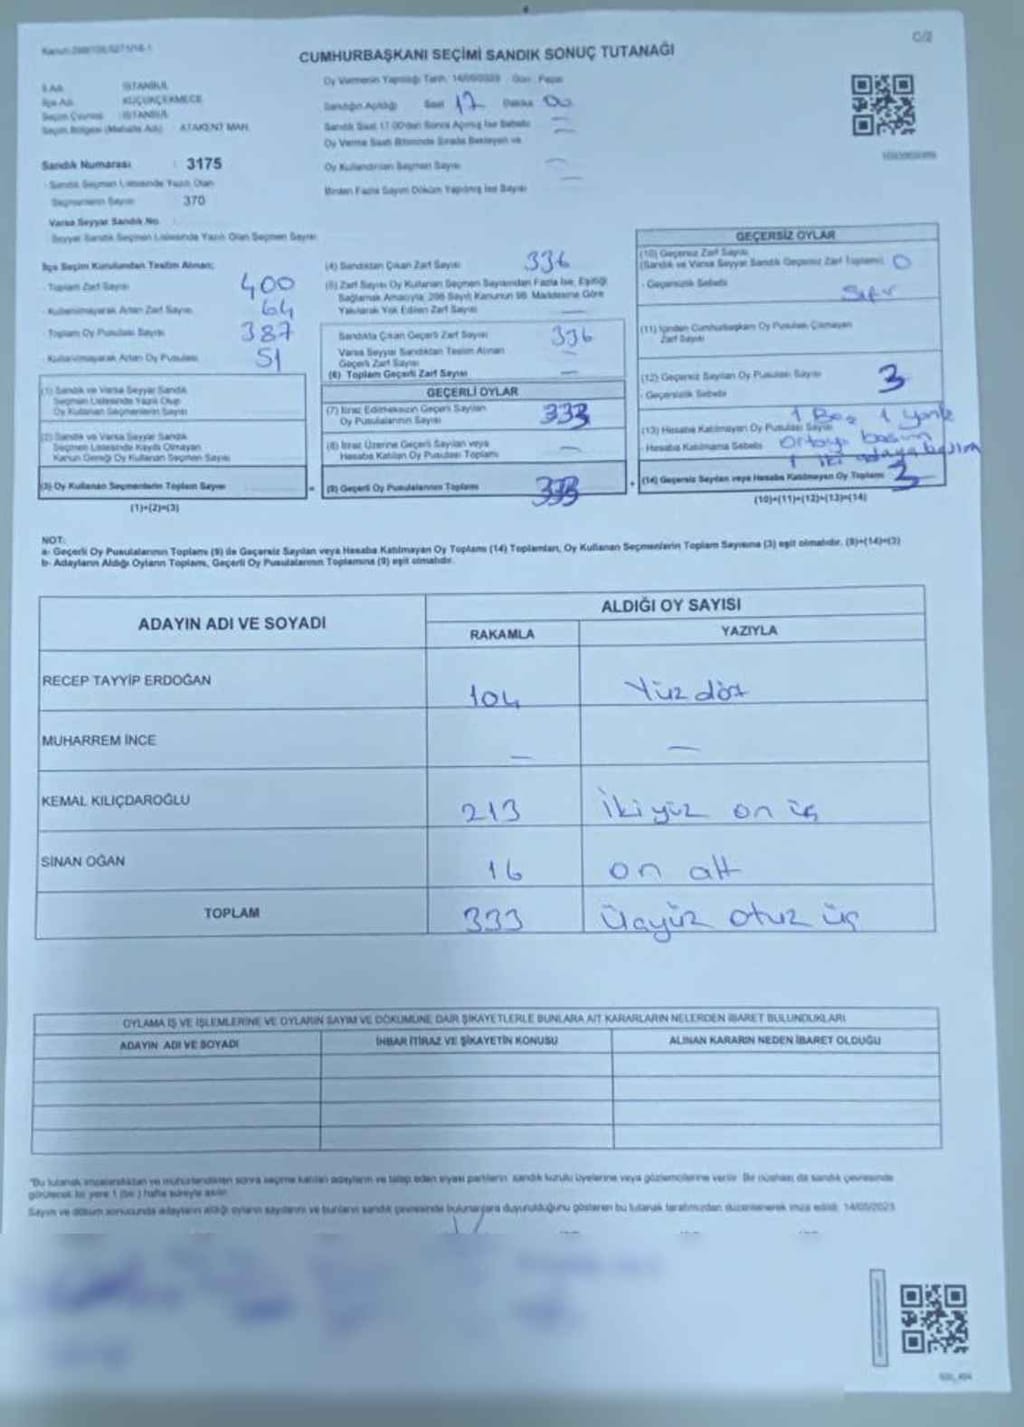 Kanun:298/105/6271/16-1
C/2
CUMHURBAŞKANI SEÇİMİ SANDIK SONUÇ TUTANAĞI
İl Adı : İSTANBUL
İlçe Adı : KÜÇÜKÇEKMECE
Seçim Çevresi : İSTANBUL
Seçim Bölgesi (Mahalle Adı) : ATAKENT MAH.
Oy Vermenin Yapıldığı Tarih: 14/05/2023 Gün: Pazar
Sandığın Açıldığı Saat 17 Dakika 00
Sandık Saat 17.00'den Sonra Açılmış İse Sebebi
Oy Verme Saati Bitiminde Sırada Bekleyen ve
Oy Kullandırılan Seçmen Sayısı —
Birden Fazla Sayım Döküm Yapılmış İse Sayısı —
Sandık Numarası : 3175
Sandık Seçmen Listesinde Yazılı Olan
Seçmenlerin Sayısı 370
Varsa Seyyar Sandık No :
Seyyar Sandık Seçmen Listesinde Yazılı Olan Seçmen Sayısı
İlçe Seçim Kurulundan Teslim Alınan;
- Toplam Zarf Sayısı 400
- Kullanılmayarak Artan Zarf Sayısı 64
Toplam Oy Pusulası Sayısı 387
- Kullanılmayarak Artan Oy Pusulası 51
(1) Sandık ve Varsa Seyyar Sandık
Seçmen Listesinde Yazılı Olup
Oy Kullanan Seçmenlerin Sayısı
(2) Sandık ve Varsa Seyyar Sandık
Seçmen Listesinde Kayıtlı Olmayan
Kanun Gereği Oy Kullanan Seçmen Sayısı
(3) Oy Kullanan Seçmenlerin Toplam Sayısı
(1)+(2)=(3)
(4) Sandıktan Çıkan Zarf Sayısı 336
(5) Zarf Sayısı Oy Kullanan Seçmen Sayısından Fazla İse, Eşitliği
Sağlamak Amacıyla 298 Sayılı Kanunun 98. Maddesine Göre
Yakılarak Yok Edilen Zarf Sayısı —
Sandıkta Çıkan Geçerli Zarf Sayısı 336
Varsa Seyyar Sandıktan Teslim Alınan
Geçerli Zarf Sayısı —
(6) Toplam Geçerli Zarf Sayısı —
GEÇERLİ OYLAR
(7) İtiraz Edilmeksizin Geçerli Sayılan
Oy Pusulalarının Sayısı 333
(8) İtiraz Üzerine Geçerli Sayılan veya
Hesaba Katılan Oy Pusulası Toplamı —
(9) Geçerli Oy Pusulalarının Toplamı 333
GEÇERSİZ OYLAR
(10) Geçersiz Zarf Sayısı
(Sandık ve Varsa Seyyar Sandık Geçersiz Zarf Toplamı) 0
- Geçersizlik Sebebi Sıfır
(11) İçinden Cumhurbaşkanı Oy Pusulası Çıkmayan
Zarf Sayısı
(12) Geçersiz Sayılan Oy Pusulası Sayısı 3
- Geçersizlik Sebebi 1 Boş 1
(13) Hesaba Katılmayan Oy Pusulası Sayısı
- Hesaba Katılmama Sebebi Ortaya basım
1 iki adaya basım
(14) Geçersiz Sayılan veya Hesaba Katılmayan Oy Toplamı 3
(10)+(11)+(12)+(13)=(14)
NOT:
a- Geçerli Oy Pusulalarının Toplamı (9) ile Geçersiz Sayılan veya Hesaba Katılmayan Oy Toplamı (14) Toplamları, Oy Kullanan Seçmenlerin Toplam Sayısına (3) eşit olmalıdır. (9)+(14)=(3)
b- Adayların Aldığı Oyların Toplamı, Geçerli Oy Pusulalarının Toplamına (9) eşit olmalıdır.
ADAYIN ADI VE SOYADI
ALDIĞI OY SAYISI
RAKAMLA YAZIYLA
RECEP TAYYİP ERDOĞAN 104 Yüz dört
MUHARREM İNCE — —
KEMAL KILIÇDAROĞLU 213 İkiyüz on üç
SİNAN OĞAN 16 on altı
TOPLAM 333 Üçyüz otuz üç
OYLAMA İŞ VE İŞLEMLERİNE VE OYLARIN SAYIM VE DÖKÜMÜNE DAİR ŞİKAYETLERLE BUNLARA AİT KARARLARIN NELERDEN İBARET BULUNDUKLARI
ADAYIN ADI VE SOYADI İHBAR İTİRAZ VE ŞİKAYETİN KONUSU ALINAN KARARIN NEDEN İBARET OLDUĞU
*Bu tutanak imzalandıktan ve mühürlendikten sonra seçime katılan adayların ve talep eden siyasi partilerin sandık kurulu üyelerine veya gözlemcilerine verilir. Bir nüshası da sandık çevresinde
görülecek bir yere 1 (bir) hafta süreyle asılır.
Sayım ve döküm sonucunda adayların aldığı oyların sayılarını ve bunların sandık çevresinde bulunanlara duyurulduğunu gösteren bu tutanak tarafımızdan düzenlenerek imza edildi. 14/05/2023